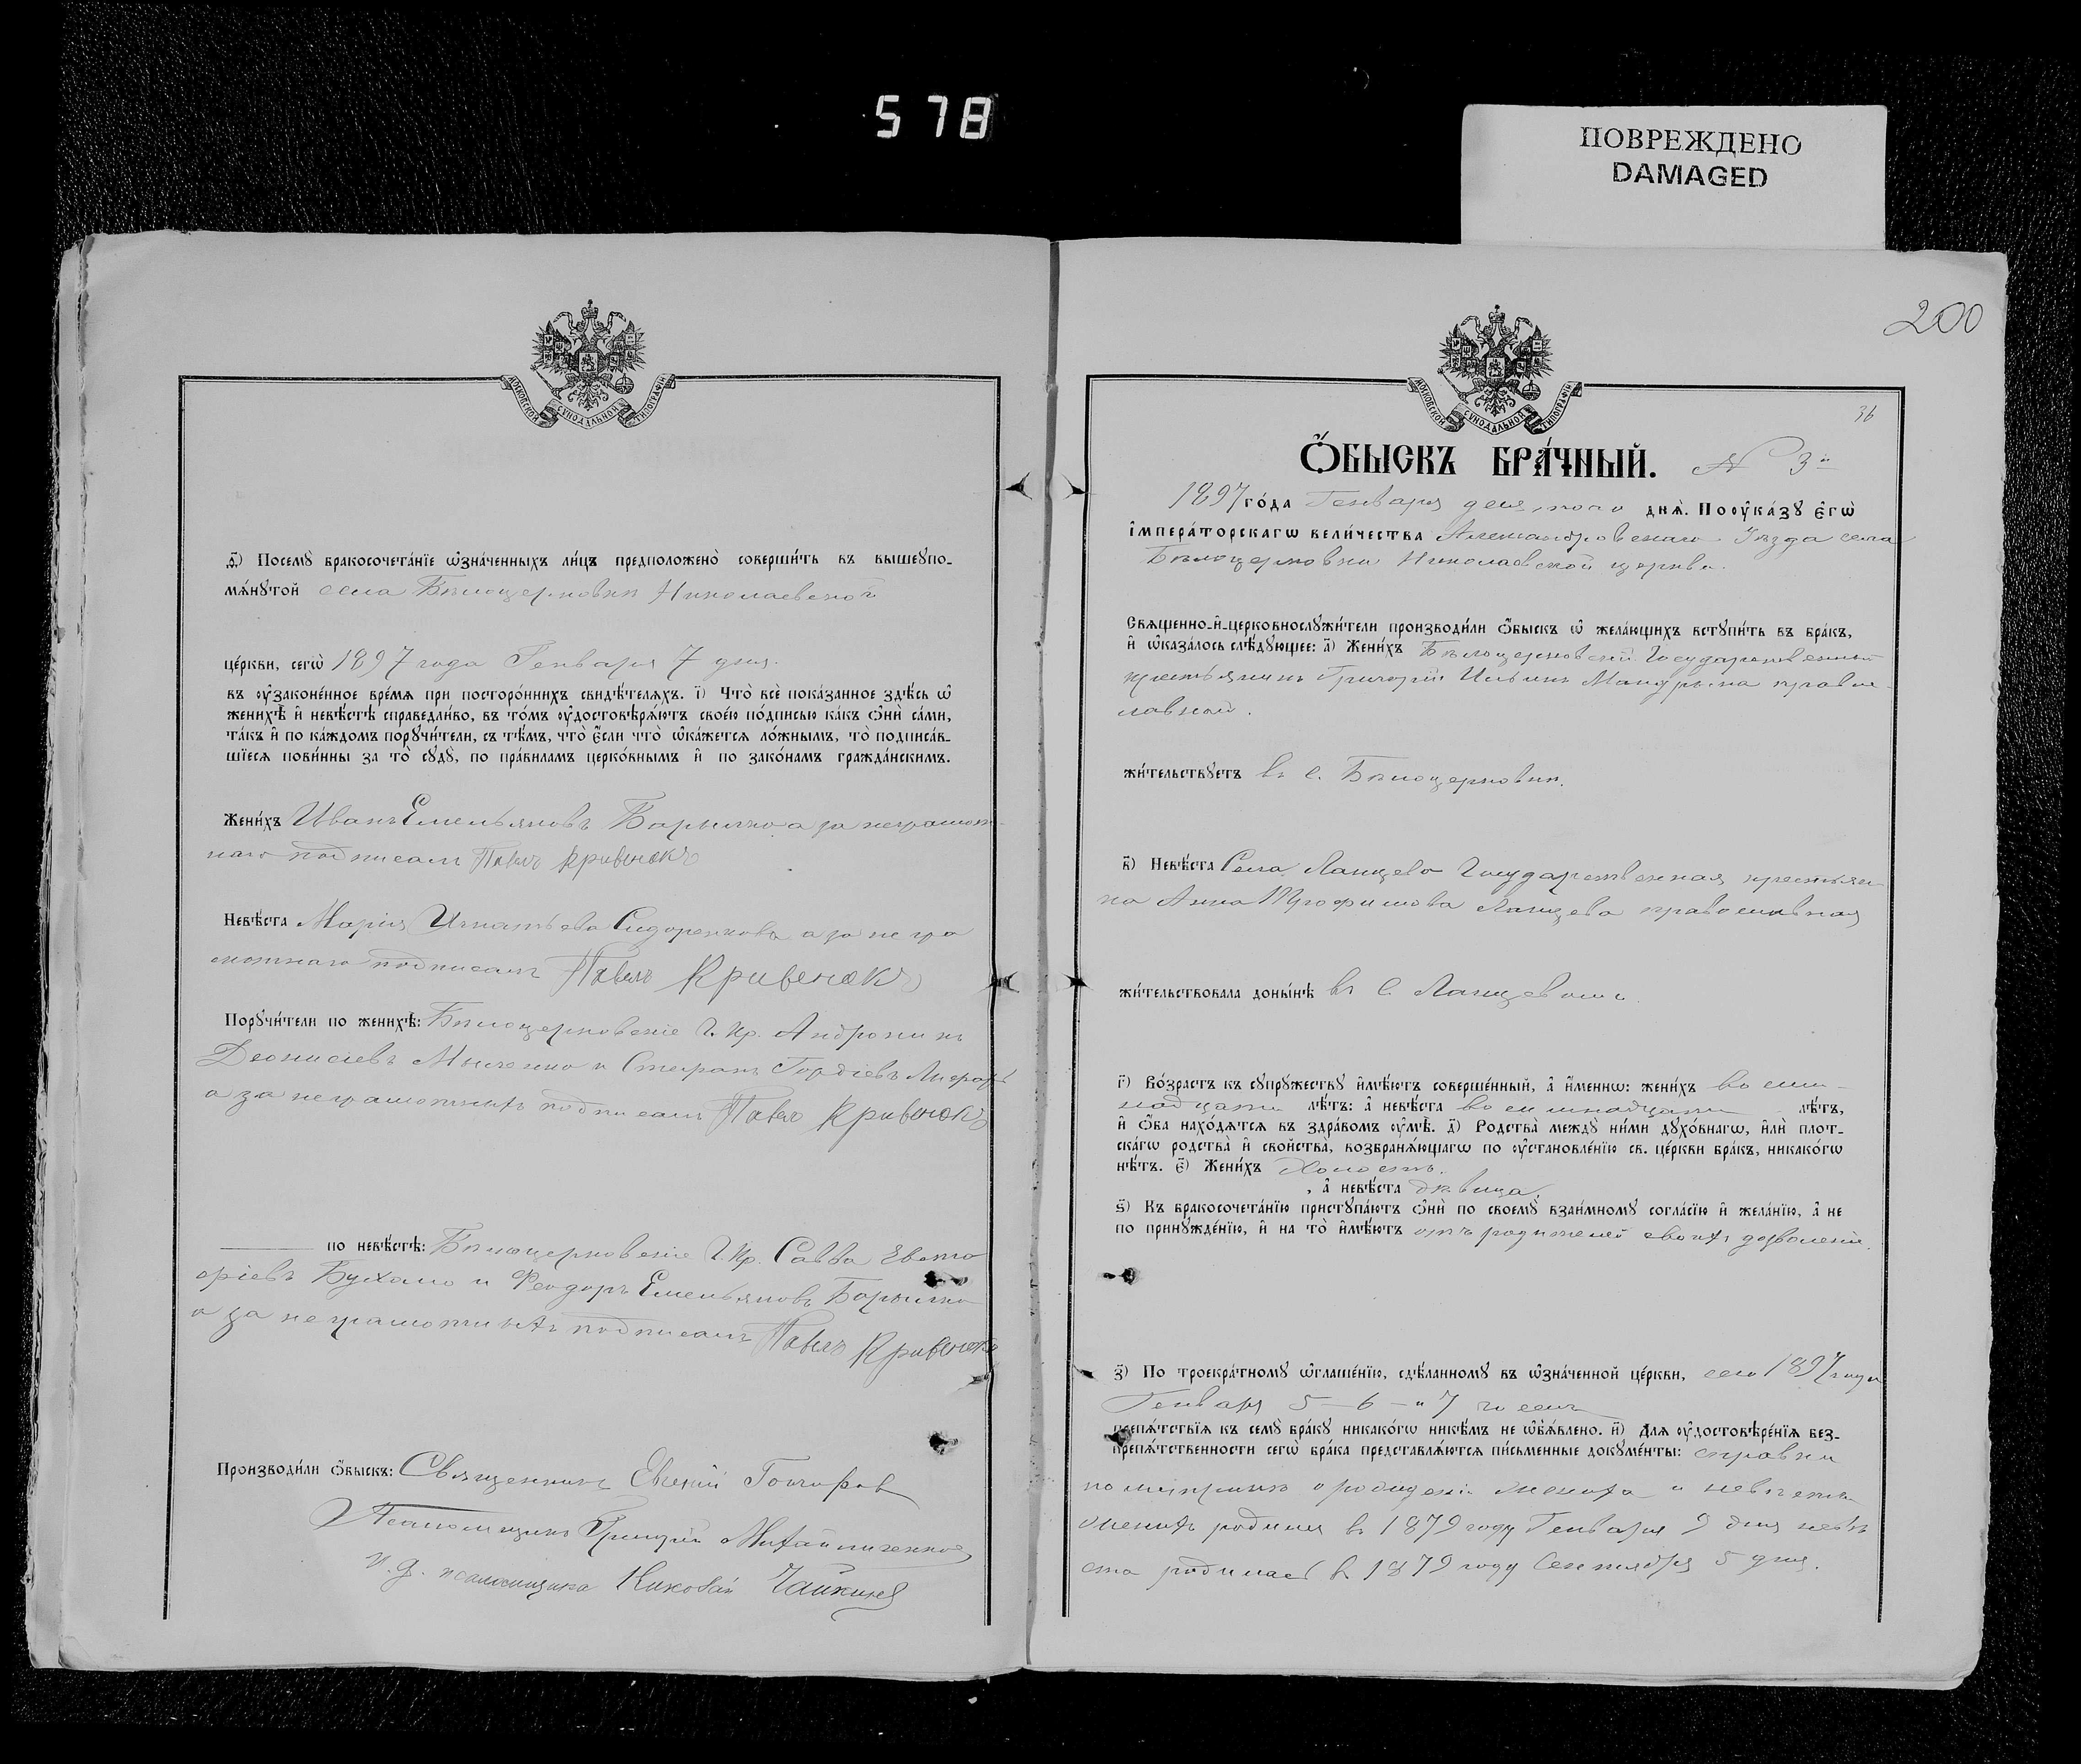 578
ПОВРЕЖДЕНО
DAMAGED
МОСКОВСКОЙ СѴНОДАЛЬНОЙ ТИПОГРАФІИ
д҃) Посемꙋ̀ бракосочета́нїе ѡ҆зна́ченныхъ ли́цъ предположено̀ соверши́ть въ вышеꙋпо-
мѧ́нꙋтой села Бѣлоцерковки Николаевской
це́ркви, сегѡ̀ 1897 года Генваря 7 дня.
въ ᲂу҆законе́нное вре́мѧ при посторо́ннихъ свидѣ́телѧхъ. і҃) Что̀ всѐ пока́занное здѣ́сь ѡ҆
женихѣ̀ и҆ невѣ́стѣ справедли́во, въ то́мъ ᲂу҆достовѣрѧ́ютъ свое́ю по́дписью ка́къ ѻ҆нѝ са́ми,
та́къ и҆ по ка́ждомъ порꙋчи́тели, съ тѣ́мъ, что̀ є҆́сли что̀ ѡ҆ка́жетсѧ ло́жнымъ, то̀ подписа́в-
шїесѧ пови́нны за то̀ сꙋдꙋ̀, по пра́виламъ церко́внымъ и҆ по зако́намъ гражда́нскимъ.
Жени́хъ Иванъ Емельяновъ Барылко а за неграмот-
наго подписалъ Павелъ Кривенокъ
Невѣ́ста Марія Игнатьева Сидоренкова а за негра
мотнаго подписалъ Павелъ Кривенокъ
Порꙋчи́тели по женихѣ̀: Бѣлоцерковскіе Г. Кр. Андроникъ
Деонисіевъ и Стефанъ Гордіевъ
а за неграмотныхъ подписалъ Павелъ Кривенокъ
по невѣ́стѣ: Бѣлоцерковскіе Г. Кр. Савва
и Феодоръ Емельяновъ Барылко
а за неграмотныхъ подписалъ Павелъ Кривенокъ
Производи́ли ѻ҆́быскъ: Священникъ Евгеній Гончаровъ
Псаломщикъ Григорій Михайличенко
и. д. псаломщика Николай
200
36
Ѻ҆́БЫСКЪ БРА́ЧНЫЙ. N 3й
1897 го́да Генваря девятого днѧ̀. По ᲂу҆ка́зꙋ є҆гѡ̀
і҆мпера́торскагѡ вели́чества Александровскаго Уѣзда села
Бѣлоцерковки Николаевской церкви.
Свѧщенно-и҆-церковнослꙋжи́тели производи́ли ѻ҆́быскъ ѡ҆ жела́ющихъ встꙋпи́ть въ бра́къ,
и҆ ѡ҆каза́лось слѣ́дꙋющее: а҃) Жени́хъ Бѣлоцерковскій Государственный
крестьянинъ Григорій Ильинъ Мандрыка правос-
лавной.
жи́тельствꙋетъ въ с. Бѣлоцерковки.
в҃) Невѣ́ста Села Ланцево Государственная крестьян
ка Анна Трофимова Ланцева православная
жи́тельствовала доны́нѣ въ С. Ланцевомъ
г҃) Во́зрастъ къ сꙋпрꙋ́жествꙋ и҆мѣ́ютъ соверше́нный, а҆ и҆́меннѡ: жени́хъ восем-
надцати лѣ́тъ: а҆ невѣ́ста восемнадцати лѣ́тъ,
и҆ ѻ҆́ба нахо́дѧтсѧ въ здра́вомъ ᲂу҆мѣ̀. д҃) Родства̀ междꙋ̀ ни́ми дꙋхо́внагѡ, и҆лѝ плот-
ска́гѡ родства̀ и҆ сво́йства̀, возбранѧ́ющагѡ по ᲂу҆становле́нїю св. це́ркви бра́къ, никако́гѡ
нѣ́тъ. є҃) Жени́хъ холостъ.
, а҆ невѣ́ста дѣвица.
ѕ҃) Къ бракосочета́нїю пристꙋпа́ютъ ѻ҆нѝ по своемꙋ̀ взаи́мномꙋ согла́сїю и҆ жела́нїю, а҆ не
по принꙋжде́нїю, и҆ на то̀ и҆мѣ́ютъ отъ родителей своихъ дозволеніе.
з҃) По троекра́тномꙋ ѡ҆глаше́нїю, сдѣ́ланномꙋ въ ѡ҆зна́ченной це́ркви, сего 1897 года
Генваря 5 – 6 – и 7 чиселъ
препѧ́тствїѧ къ семꙋ̀ бра́кꙋ никако́гѡ никѣ́мъ не ѡ҆б̾ѧ́влено. и҃) Длѧ ᲂу҆достовѣре́нїѧ без-
препѧ́тственности сегѡ̀ бра́ка представлѧ́ютсѧ пи́сьменные докꙋме́нты: справки
по метрикѣ о рожденіи жениха и невѣсты
женихъ родился въ 1879 году Генваря 9 дня невѣ
ста родилась въ 1879 году Сентября 5 дня.